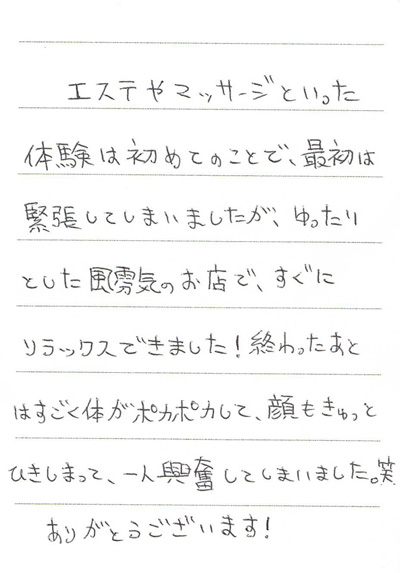 エステやマッサージといった
体験は初めてのことで、最初は
緊張してしまいましたが、ゆったり
とした風雰気のお店で、すぐに
リラックスできました！終わったあと
はすごく体がポカポカして、顔もきゅっと
ひきしまって、一人興奮してしまいました。笑
ありがとうございます！